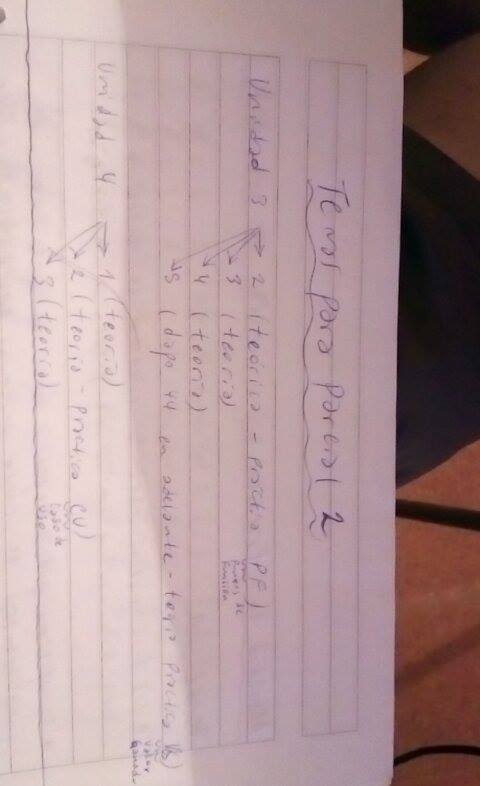 Temas para Parcial 2
Unidad 3 → 2 (teórico - practico PF)
Puntos de
Función
3 (teoría)
4 (teoría)
5 (dapo 44 en adelante - teoria practica VG)
Valor
Ganado
Unidad 4 → 1 (teoría)
2 (teoría - practico CU)
Caso de
Uso
3 (teoría)